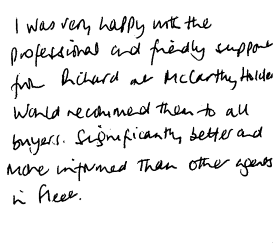 I was very happy with the
professional and friendly support
from Richard at McCarthy Holden
Would recommend them to all
buyers. Significantly better and
more informed than other agents
in Fleet.